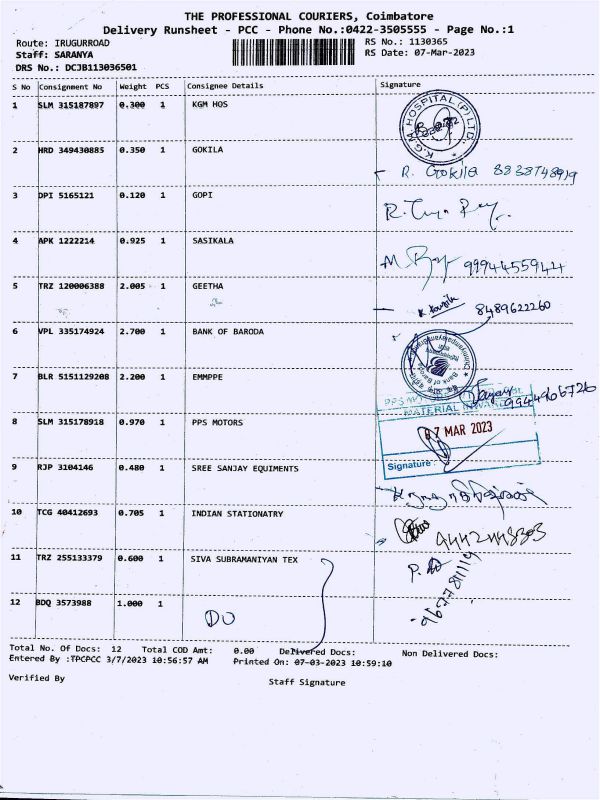 THE PROFESSIONAL COURIERS, Coimbatore
Delivery Runsheet - PCC - Phone No.:0422-3505555 - Page No.:1
Route: IRUGURROAD
Staff: SARANYA
DRS No.: DCJB113036501
RS No.: 1130365
RS Date: 07-Mar-2023
S No Consignment No Weight PCS Consignee Details Signature
1 SLM 315187897 0.300 1 KGM HOS
K.G.M HOSPITAL (P) LTD.
2 HRD 349430885 0.350 1 GOKILA
R. Gokila 8838748919
3 DPI 5165121 0.120 1 GOPI
4 APK 1222214 0.925 1 SASIKALA
9994455944
5 TRZ 120006388 2.005 1 GEETHA
8489622260
6 VPL 335174924 2.700 1 BANK OF BARODA
Bank of Baroda
7 BLR 5151129208 2.200 1 EMMPPE
9944906726
MATERIAL
8 SLM 315178918 0.970 1 PPS MOTORS
07 MAR 2023
Signature
9 RJP 3104146 0.480 1 SREE SANJAY EQUIMENTS
10 TCG 40412693 0.705 1 INDIAN STATIONATRY
11 TRZ 255133379 0.600 1 SIVA SUBRAMANIYAN TEX
9627781119
12 BDQ 3573988 1.000 1
DO
Total No. Of Docs: 12 Total COD Amt: 0.00 Delivered Docs: Non Delivered Docs:
Entered By :TPCPCC 3/7/2023 10:56:57 AM Printed On: 07-03-2023 10:59:10
Verified By Staff Signature